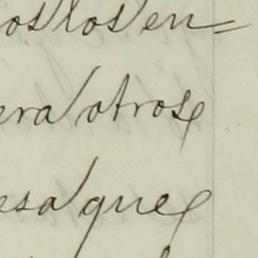 os los en=
era otros
esa que